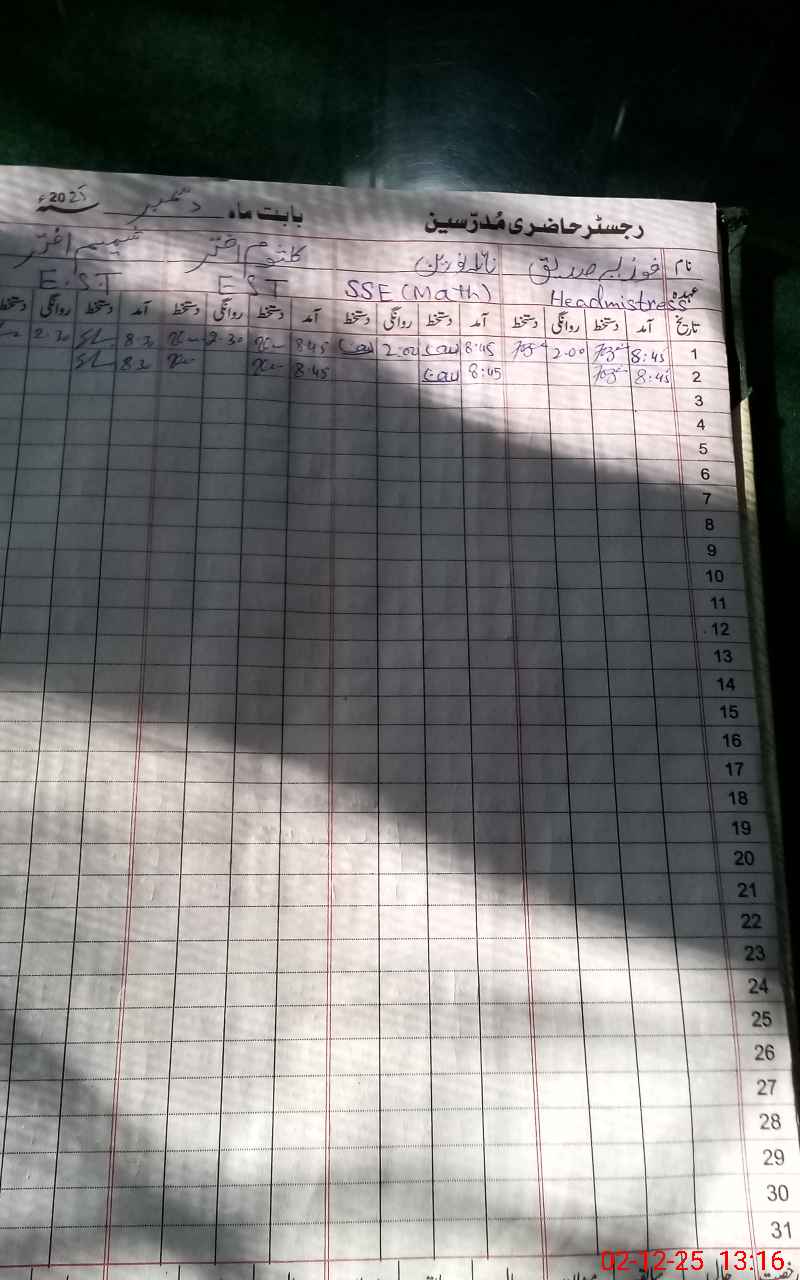 رجسٹر حاضری مُدرّسین بابت ماہ دسمبر 2025ء
نام فوزیہ صدیق کلثوم اختر شمیم اختر
عہدہ Headmistress SSE (Math) EST E.S.T
تاریخ آمد دستخط روانگی دستخط آمد دستخط روانگی دستخط آمد دستخط روانگی دستخط آمد دستخط روانگی
1 8:45 2.00 8:45 2:00 8:45 2.30 8.30 2.30
2 8:45 8:45 8:45 8.30
3
4
5
6
7
8
9
10
11
12
13
14
15
16
17
18
19
20
21
22
23
24
25
26
27
28
29
30
31
02-12-25 13:16